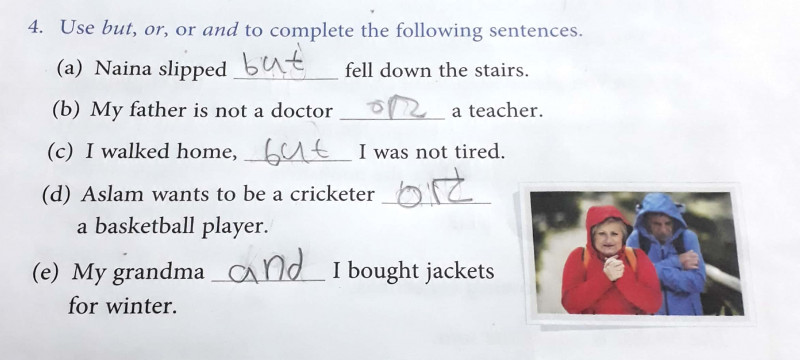 4. Use but, or, or and to complete the following sentences.
(a) Naina slipped but fell down the stairs.
(b) My father is not a doctor or a teacher.
(c) I walked home, but I was not tired.
(d) Aslam wants to be a cricketer
a basketball player.
(e) My grandma and I bought jackets
for winter.